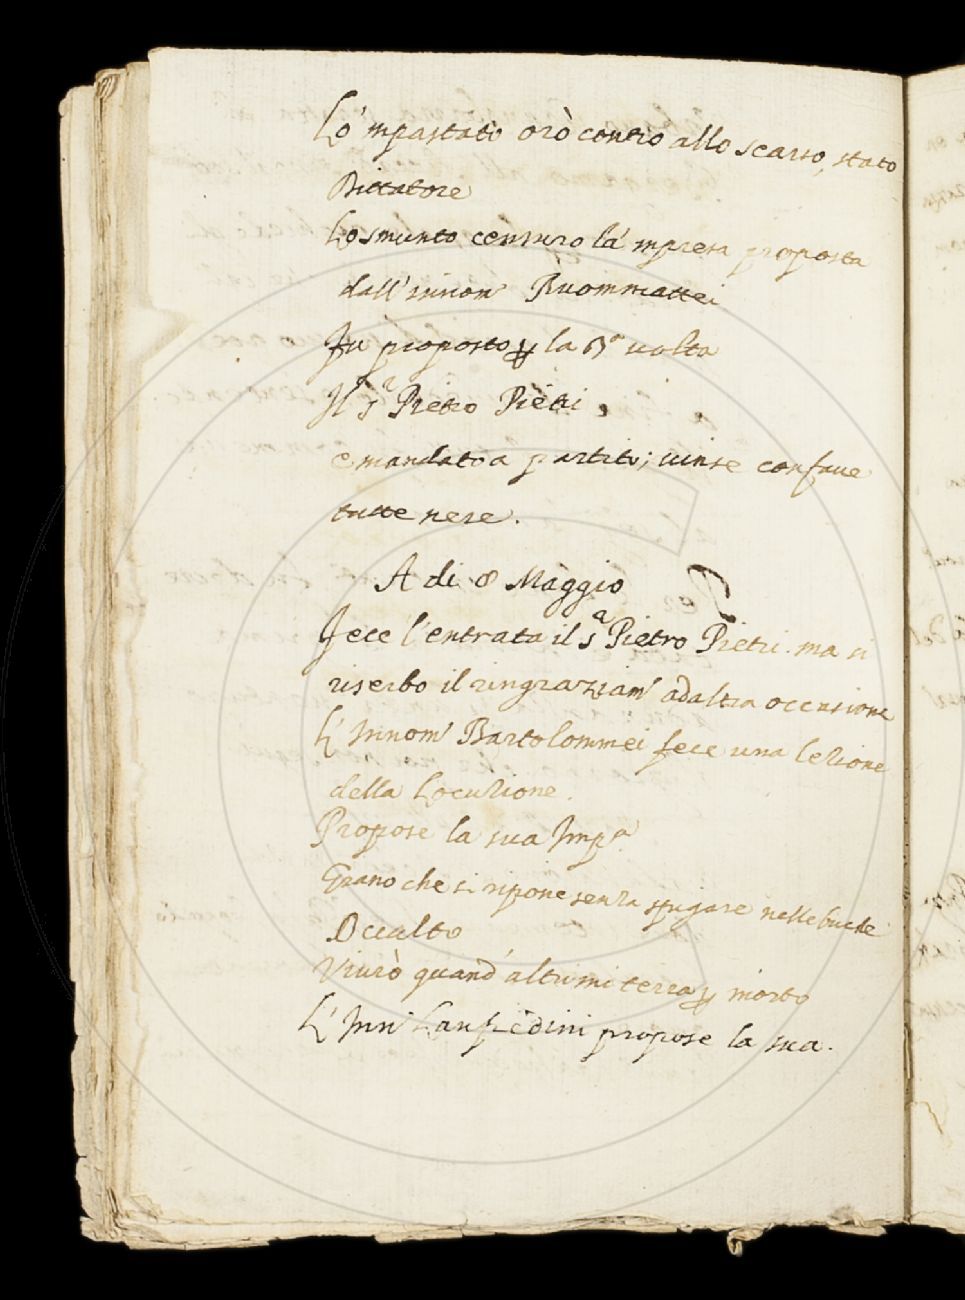 Lo 'mpastato orò contro allo scarso, stato
Dittatore
Lo smunto censurò la 'mpresa proposta
dall'innom Buommattei
Fu proposto p la Bª uolta
Il sʳ Pietro Pietri,
e mandato a partito; uinse con faue
tutte nere.
A di 8 Maggio
Fece l'entrata il sʳ Pietro Pietri. ma si
riserbò il ringraziam' ad altra occasione
L'Innom' Bartolommei fece una lezione
della Locuzione.
Propose la sua Impª
Grano che si ripone senza spigare nelle buche
Occulto
Viurò quand' altri mi terrà p morto
L'Inn' Lanfredini propose la sua.